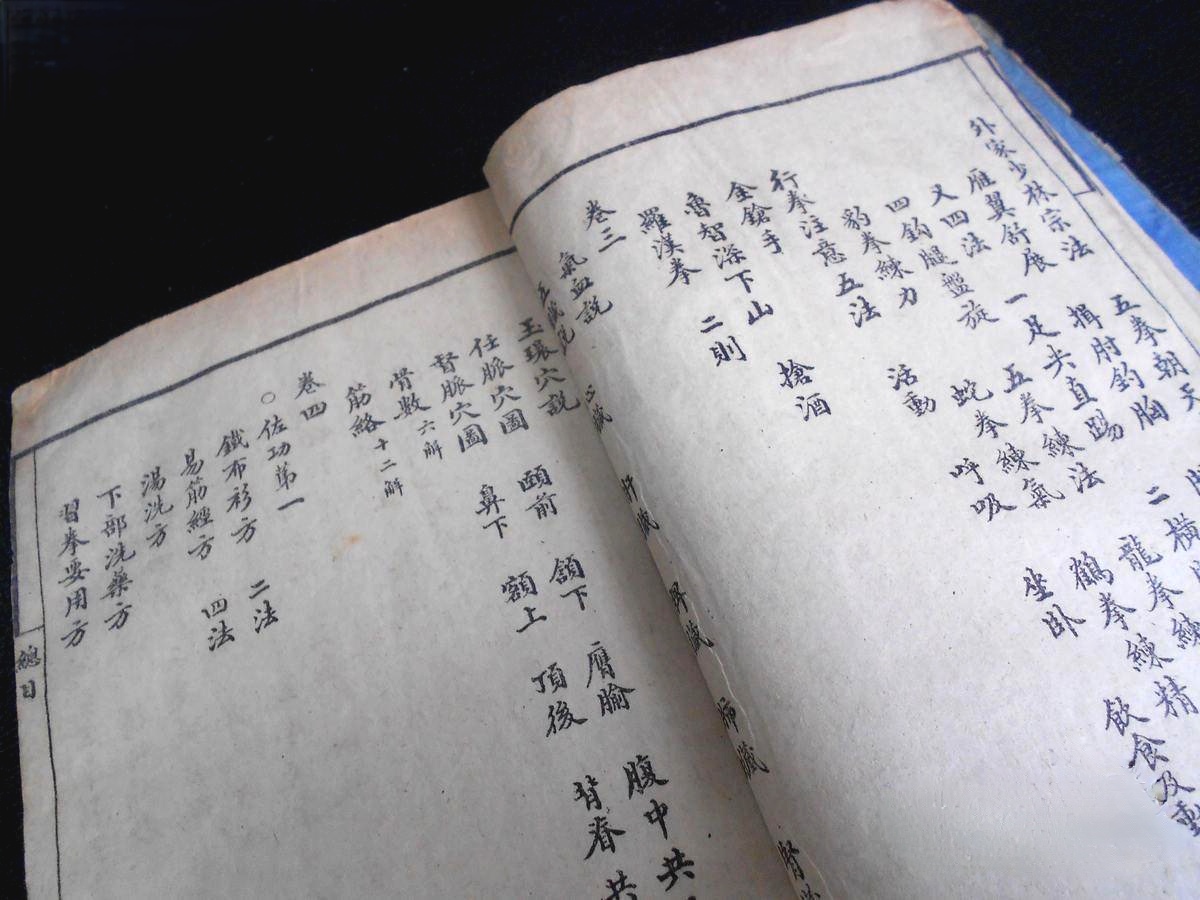 外家少林宗法 五拳朝天
雁翼舒展 掮肘釣胸
又四法 一足尖直踢 二橫
四釣腿盤旋 五拳練法 龍拳練
豹拳練力 蛇拳練氣 鶴拳練精
行拳注意五法 活動 呼吸 坐卧 飲食及動
金鎗手
魯智深下山 搶酒
羅漢拳 二則
卷三
氣血説
玉環穴説
任脈穴圖 頤前 頷下 膺腧 腹中共
督脈穴圖 鼻下 額上 頂後 背脊共
骨數六解
筋絡十二解
卷四
○佐功第一
鐵布衫方 二法
易筋經方 四法
湯洗方
下部洗藥方
習拳要用方
總目